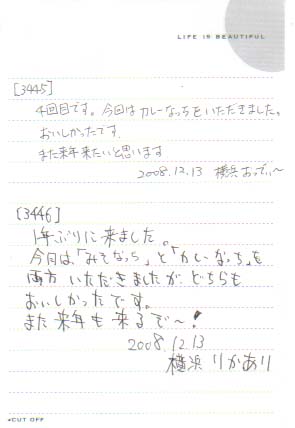 LIFE IS BEAUTIFUL
[3445]
4回目です。今回はカレーなっちをいただきました。
おいしかったです.
また来年来たいと思います
2008.12.13 横浜 おってぃ～
[3446]
1年ぶりに来ました。
今回は、「みそなっち」と「カレーなっち」を
両方 いただきましたが どちらも
おいしかったです。
また 来年も 来るで～!
2008.12.13
横浜 りかあり
CUT OFF